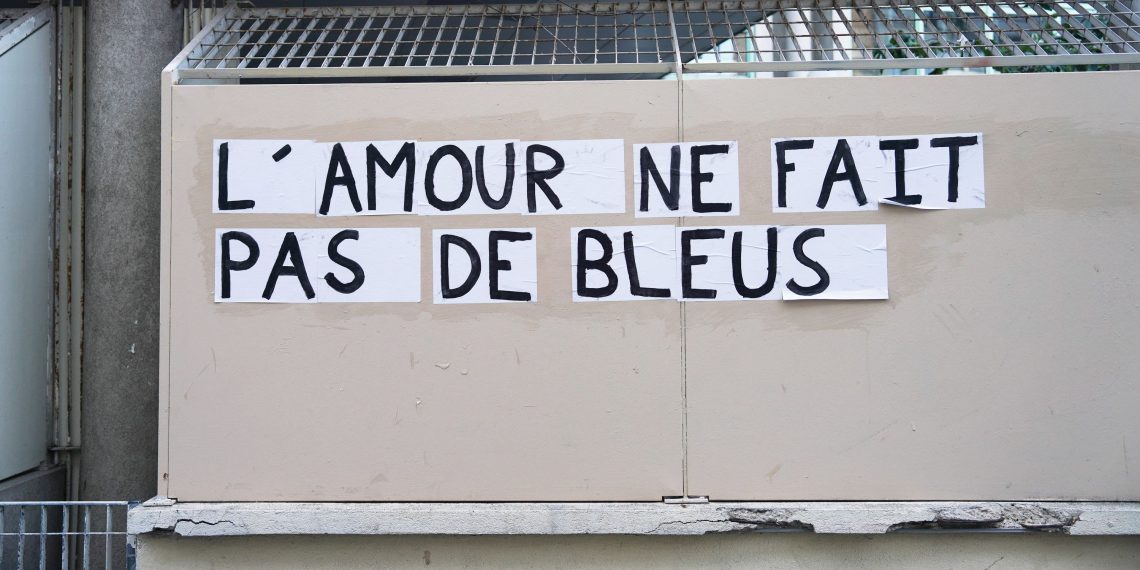 L'AMOUR NE FAIT
PAS DE BLEUS